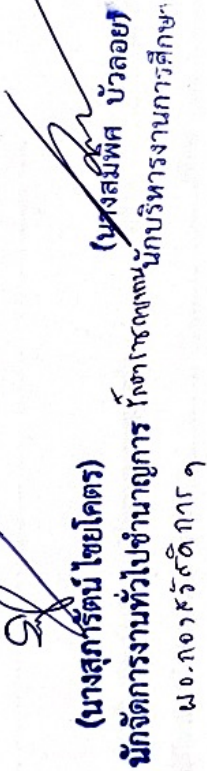 (นางสุภารัตน์ ไชยโคตร)
นักจัดการงานทั่วไปชำนาญการ
ผอ.กองสวัสดิการฯ
(นางสมพิศ บัวลอย)
นักบริหารงานการศึกษา